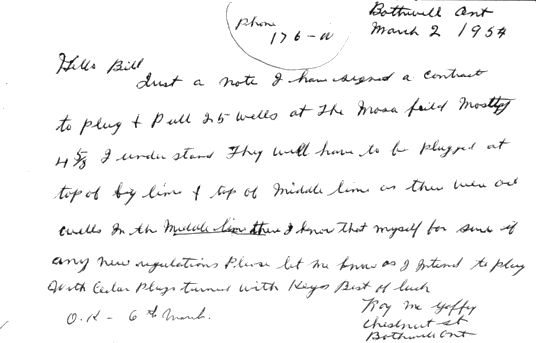 Phone
176-W
Bothwell Ont
March 2 1954
Hello Bill
Just a note I have signed a contract
to plug & Pull 25 wells at The Mosa feild Mostly
4 5/8 I understand They will have to be plugged at
top of big lime & top of Middle lime as there were oil
wells In the Middle lime there I know that myself for sure if
any new regulations Please let me know as I Intend to plug
With Cedar Plugs turned with Keys Best of luck
O.K - 6th March.
Roy Mc
Chestnut St
Bothwell Ont